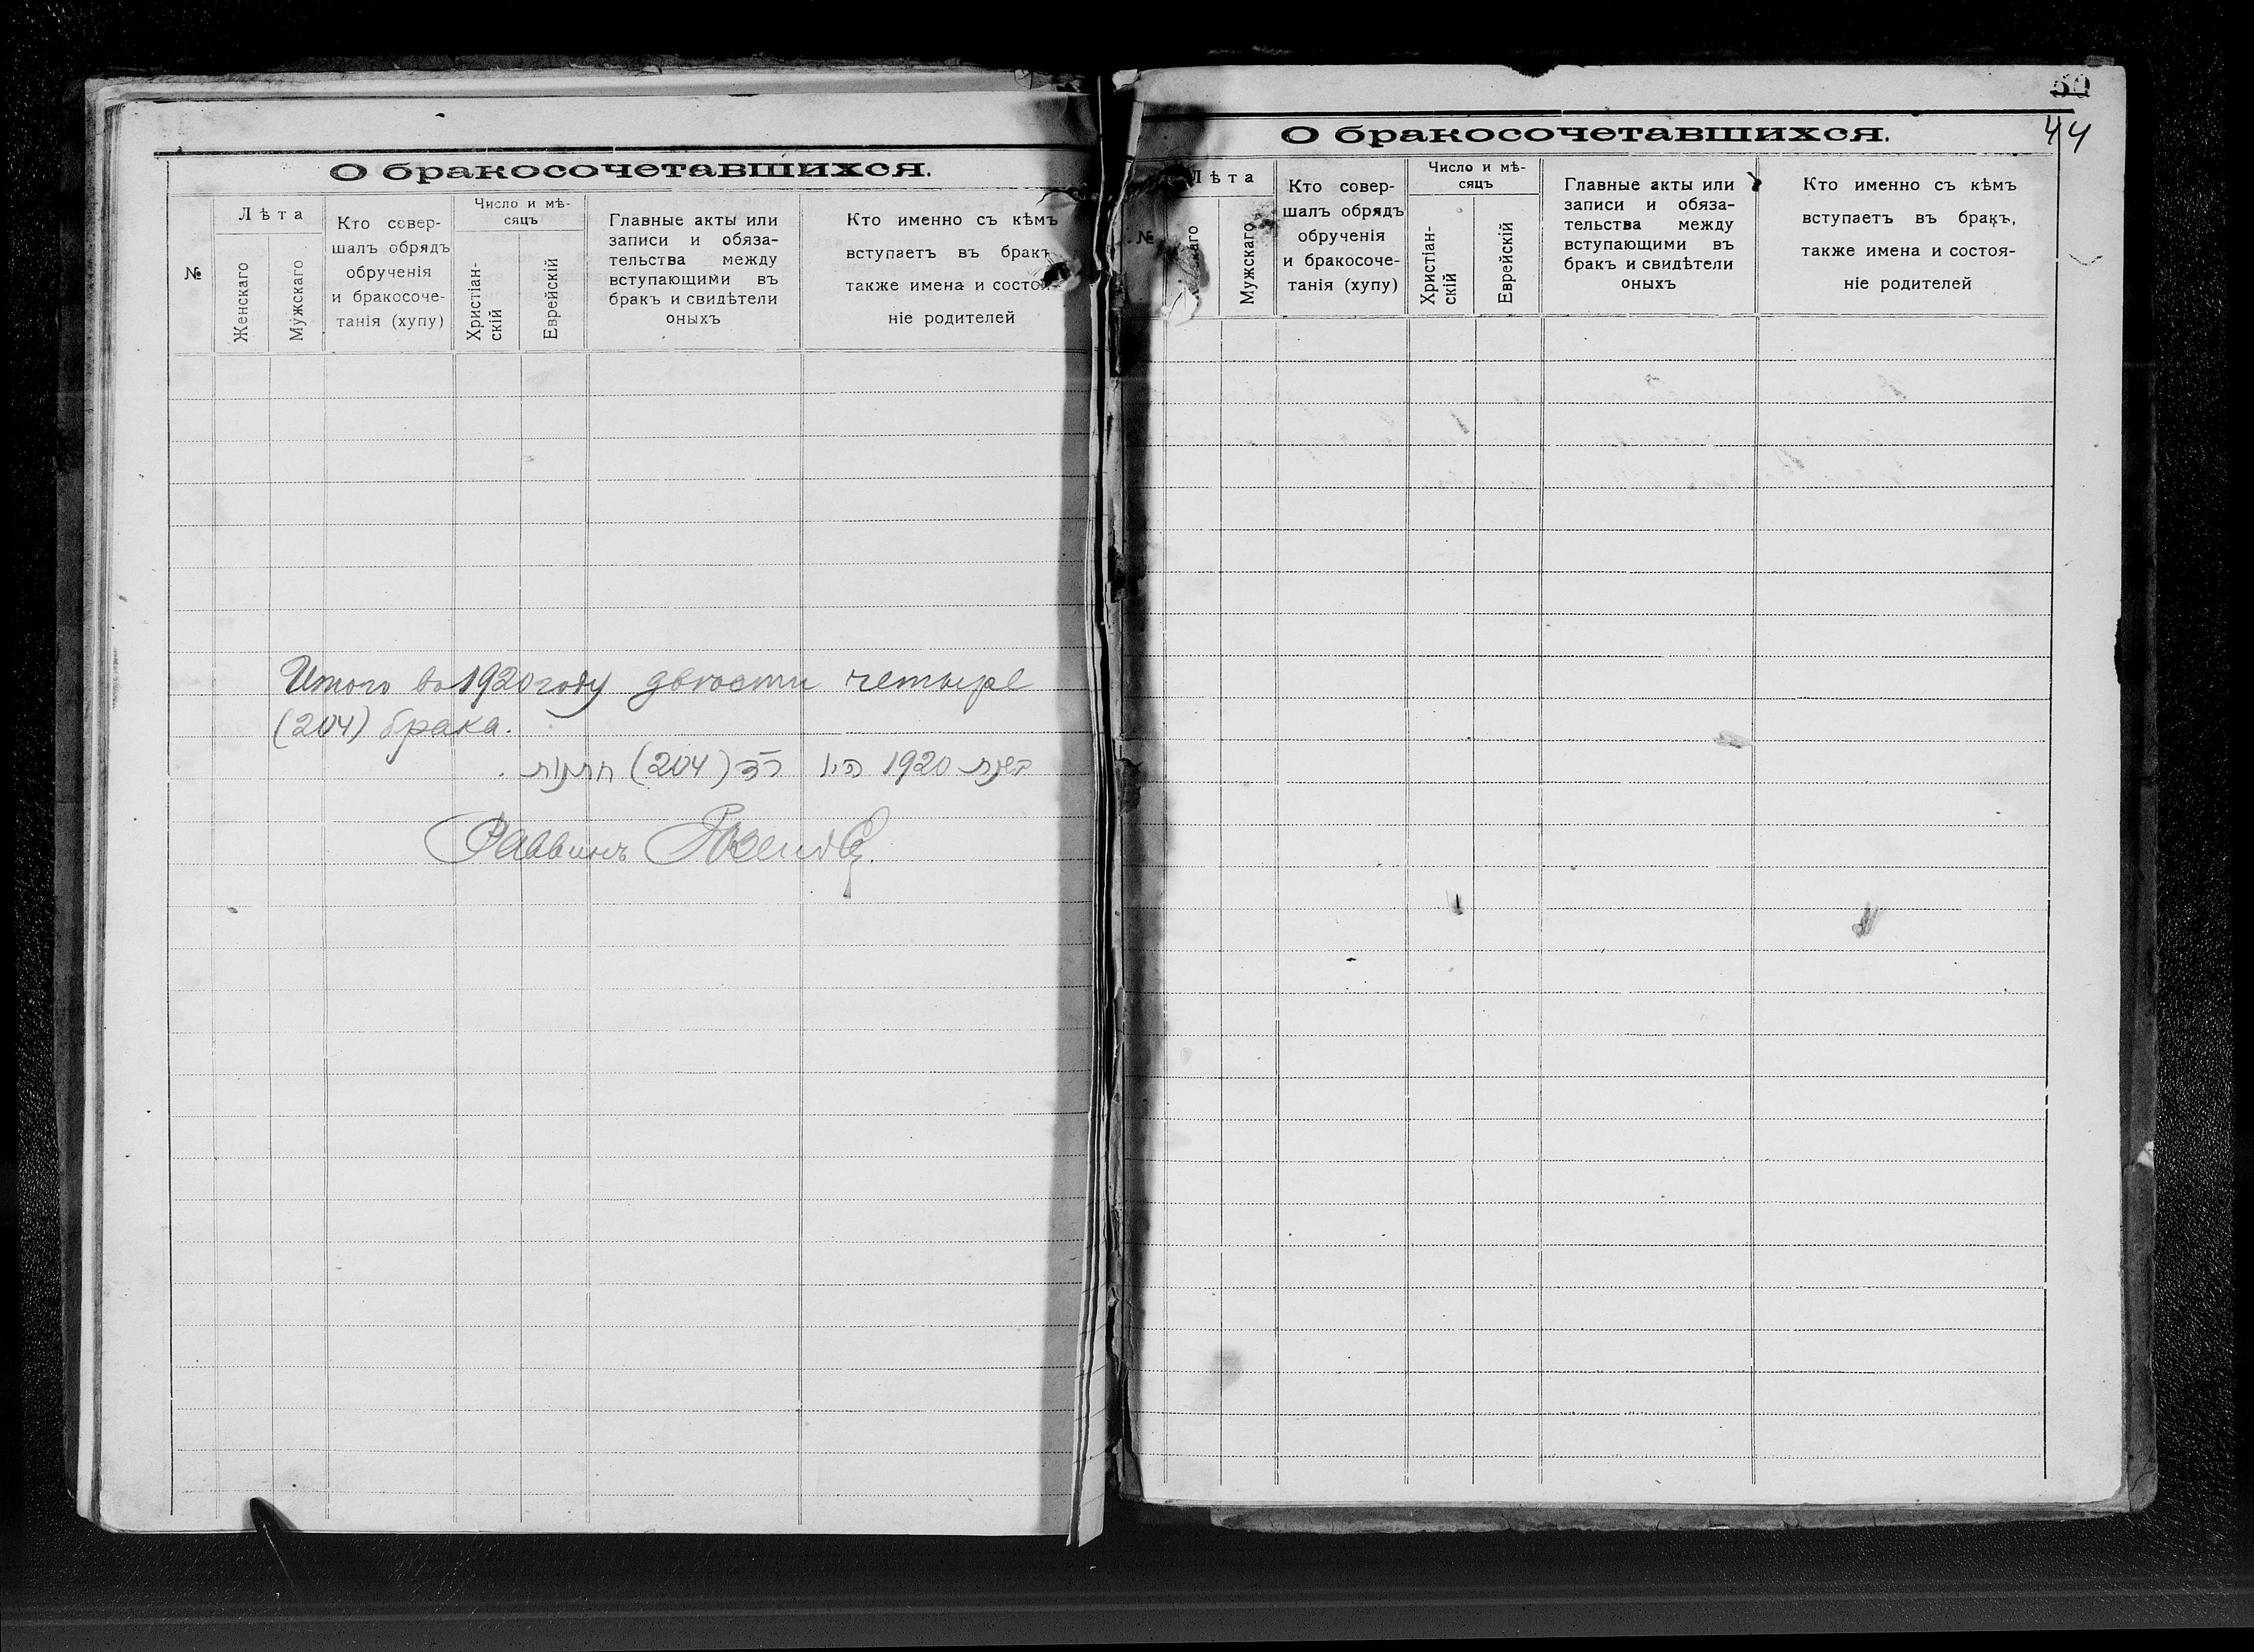 О бракосочетавшихся.
№
Лѣта
Женскаго
Мужскаго
Кто совер-
шалъ обрядъ
обрученія
и бракосоче-
танія (хупу)
Число и мѣ-
сяцъ
Христіан-
скій
Еврейскій
Главные акты или
записи и обяза-
тельства между
вступающими въ
бракъ и свидѣтели
оныхъ
Кто именно съ кѣмъ
вступаетъ въ бракъ
также имена и состоя-
ніе родителей
Итого во 1920 году двѣсти четыре
(204) брака.
בשנת 1920 היו רד (204) חתנות.
Раввинъ
50
44
О бракосочетавшихся.
№
Лѣта
Мужскаго
Кто совер-
шалъ обрядъ
обрученія
и бракосоче-
танія (хупу)
Число и мѣ-
сяцъ
Христіан-
скій
Еврейскій
Главные акты или
записи и обяза-
тельства между
вступающими въ
бракъ и свидѣтели
оныхъ
Кто именно съ кѣмъ
вступаетъ въ бракъ,
также имена и состоя-
ніе родителей